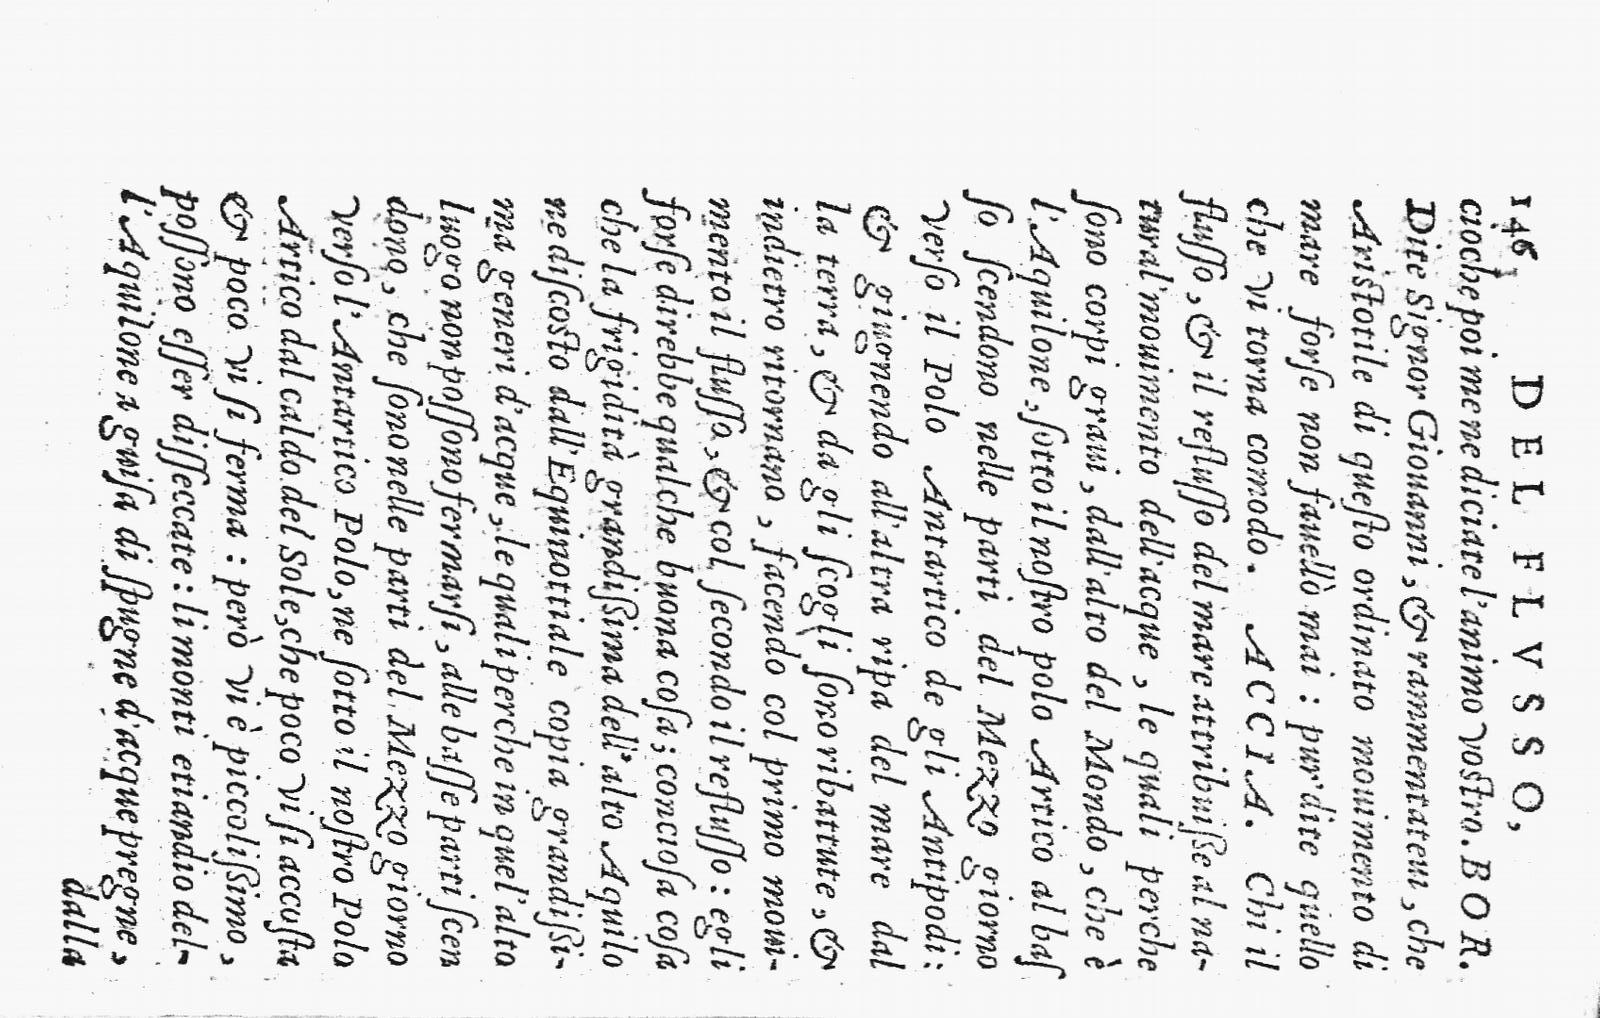 146 DEL FLVSSO,
cioche poi me ne diciate l'animo vostro. BOR.
Dite Signor Giouanni, & rammentateui, che
Aristotile di questo ordinato mouimento di
mare forse non fauellò mai: pur dite quello
che vi torna comodo. ACCIA. Chi il
flusso, & il reflusso del mare attribuisse al na-
tural'mouimento dell'acque, le quali perche
sono corpi graui, dall'alto del Mondo, che è
l'Aquilone, sotto il nostro polo Artico al bas
so scendono nelle parti del Mezzo giorno
verso il Polo Antartico de gli Antipodi:
& giugnendo all'altra ripa del mare dal
la terra, & da gli scogli sono ribattute, &
indietro ritornano, facendo col primo moui-
mento il flusso, & col secondo il reflusso: egli
forse direbbe qualche buona cosa; conciosa cosa
che la frigidità grandissima dell'alto Aquilo
ne discosto dall'Equinottiale copia grandissi-
ma generi d'acque, le quali perche in quel'alto
luogo non possono fermarsi, alle basse parti scen
dono, che sono nelle parti del Mezzo giorno
verso l'Antartico Polo, ne sotto il nostro Polo
Artico dal caldo del Sole, che poco vi si accosta
& poco vi si ferma: però vi è piccolissimo,
possono esser disseccate: li monti etiandio del-
l'Aquilone a guisa di spugne d'acque pregne,
dalla